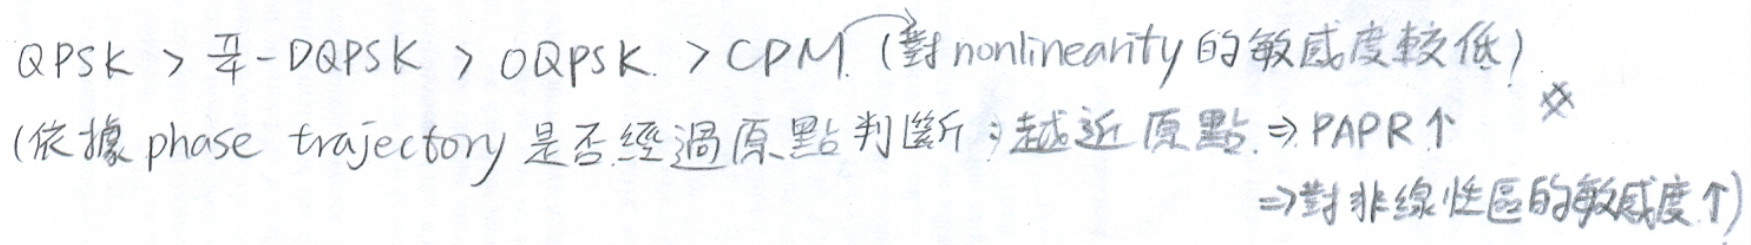 QPSK > π/4-DQPSK > OQPSK. > CPM. (對 nonlinearity 的敏感度較低)
(依據 phase trajectory 是否經過原點判斷；越近原點 ⇒ PAPR↑
⇒對非線性區的敏感度↑)